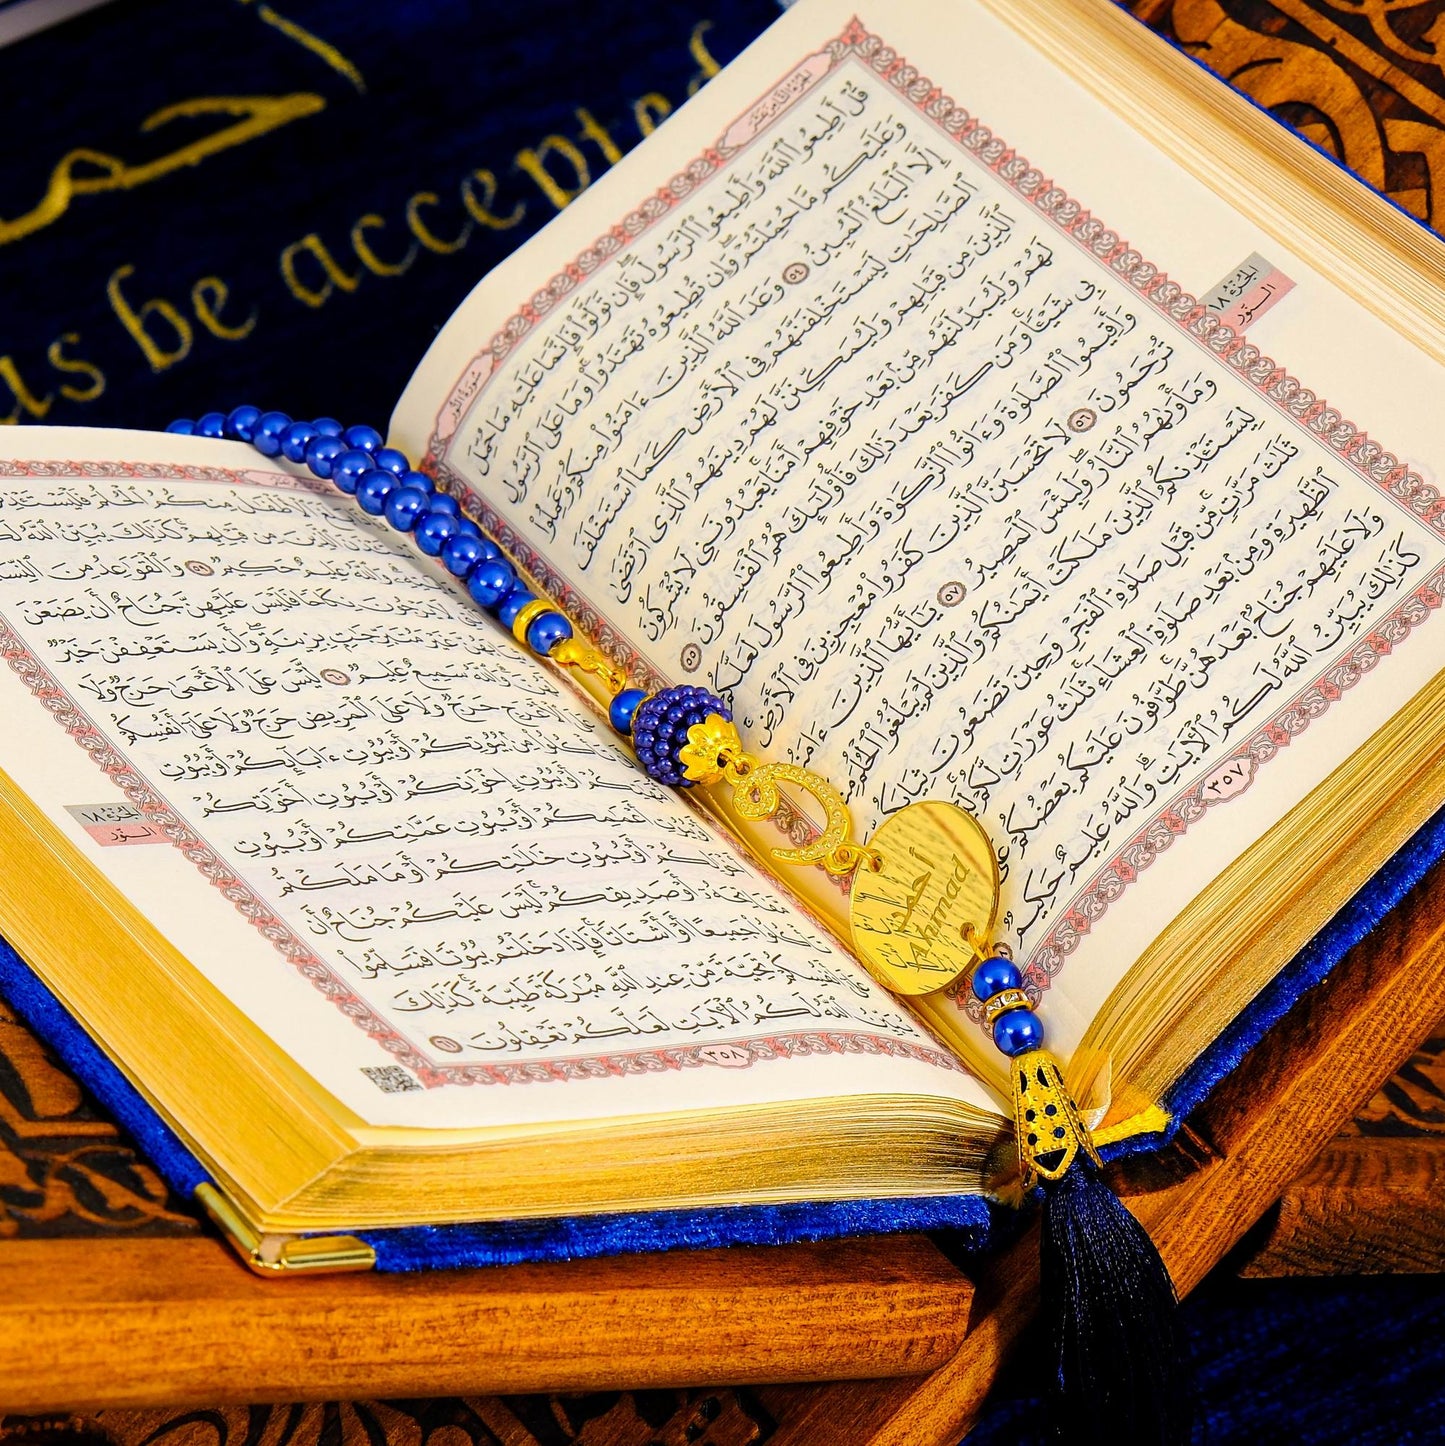 us be accepted
الجزء الثامن عشر
سورة النور
قُلْ أَطِيعُوا۟ ٱللَّهَ وَأَطِيعُوا۟ ٱلرَّسُولَ فَإِن تَوَلَّوْا۟ فَإِنَّمَا عَلَيْهِ مَا حُمِّلَ
وَعَلَيْكُم مَّا حُمِّلْتُمْ وَإِن تُطِيعُوهُ تَهْتَدُوا۟ وَمَا عَلَى ٱلرَّسُولِ
إِلَّا ٱلْبَلَٰغُ ٱلْمُبِينُ ٥٤ وَعَدَ ٱللَّهُ ٱلَّذِينَ ءَامَنُوا۟ مِنكُمْ وَعَمِلُوا۟
ٱلصَّٰلِحَٰتِ لَيَسْتَخْلِفَنَّهُمْ فِى ٱلْأَرْضِ كَمَا ٱسْتَخْلَفَ
ٱلَّذِينَ مِن قَبْلِهِمْ وَلَيُمَكِّنَنَّ لَهُمْ دِينَهُمُ ٱلَّذِى ٱرْتَضَىٰ
لَهُمْ وَلَيُبَدِّلَنَّهُم مِّنۢ بَعْدِ خَوْفِهِمْ أَمْنًا يَعْبُدُونَنِى لَا يُشْرِكُونَ
بِى شَيْـًٔا وَمَن كَفَرَ بَعْدَ ذَٰلِكَ فَأُو۟لَٰٓئِكَ هُمُ ٱلْفَٰسِقُونَ ٥٥
وَأَقِيمُوا۟ ٱلصَّلَوٰةَ وَءَاتُوا۟ ٱلزَّكَوٰةَ وَأَطِيعُوا۟ ٱلرَّسُولَ لَعَلَّكُمْ
تُرْحَمُونَ ٥٦ لَا تَحْسَبَنَّ ٱلَّذِينَ كَفَرُوا۟ مُعْجِزِينَ فِى ٱلْأَرْضِ
وَمَأْوَىٰهُمُ ٱلنَّارُ وَلَبِئْسَ ٱلْمَصِيرُ ٥٧ يَٰٓأَيُّهَا ٱلَّذِينَ ءَامَنُوا۟
لِيَسْتَـْٔذِنكُمُ ٱلَّذِينَ مَلَكَتْ أَيْمَٰنُكُمْ وَٱلَّذِينَ لَمْ يَبْلُغُوا۟ ٱلْحُلُمَ
ثَلَٰثَ مَرَّٰتٍ مِّن قَبْلِ صَلَوٰةِ ٱلْفَجْرِ وَحِينَ تَضَعُونَ ثِيَابَكُم
ٱلظَّهِيرَةِ وَمِنۢ بَعْدِ صَلَوٰةِ ٱلْعِشَآءِ ثَلَٰثُ عَوْرَٰتٍ لَّكُمْ
وَلَا عَلَيْهِمْ جُنَاحٌۢ بَعْدَهُنَّ طَوَّٰفُونَ عَلَيْكُم بَعْضُكُمْ عَلَىٰ
كَذَٰلِكَ يُبَيِّنُ ٱللَّهُ لَكُمُ ٱلْـَٔايَٰتِ وَٱللَّهُ عَلِيمٌ حَكِيمٌ
٣٥٧
الجزء ١٨
النور
ٱلْأَطْفَٰلُ مِنكُمُ ٱلْحُلُمَ
ٱلَّذِينَ مِن قَبْلِهِمْ كَذَٰلِكَ يُبَيِّنُ ٱللَّهُ
وَٱللَّهُ عَلِيمٌ حَكِيمٌ ٥٩ وَٱلْقَوَٰعِدُ مِنَ
لَا يَرْجُونَ نِكَاحًا فَلَيْسَ عَلَيْهِنَّ جُنَاحٌ أَن يَضَعْنَ
غَيْرَ مُتَبَرِّجَٰتٍۭ بِزِينَةٍ وَأَن يَسْتَعْفِفْنَ خَيْرٌ
وَٱللَّهُ سَمِيعٌ عَلِيمٌ ٦٠ لَّيْسَ عَلَى ٱلْأَعْمَىٰ حَرَجٌ وَلَا
حَرَجٌ وَلَا عَلَى ٱلْمَرِيضِ حَرَجٌ وَلَا عَلَىٰٓ أَنفُسِكُمْ
مِنۢ بُيُوتِكُمْ أَوْ بُيُوتِ ءَابَآئِكُمْ أَوْ بُيُوتِ
أَوْ بُيُوتِ إِخْوَٰنِكُمْ أَوْ بُيُوتِ أَخَوَٰتِكُمْ
أَعْمَٰمِكُمْ أَوْ بُيُوتِ عَمَّٰتِكُمْ أَوْ بُيُوتِ
أَوْ بُيُوتِ خَٰلَٰتِكُمْ أَوْ مَا مَلَكْتُم
أَوْ صَدِيقِكُمْ لَيْسَ عَلَيْكُمْ جُنَاحٌ أَن
جَمِيعًا أَوْ أَشْتَاتًا فَإِذَا دَخَلْتُم بُيُوتًا فَسَلِّمُوا۟
عَلَىٰٓ أَنفُسِكُمْ تَحِيَّةً مِّنْ عِندِ ٱللَّهِ مُبَٰرَكَةً طَيِّبَةً كَذَٰلِكَ
يُبَيِّنُ ٱللَّهُ لَكُمُ ٱلْـَٔايَٰتِ لَعَلَّكُمْ تَعْقِلُونَ ٦١
٣٥٨
الجزء ١٨
النور
أحمد
Ahmad